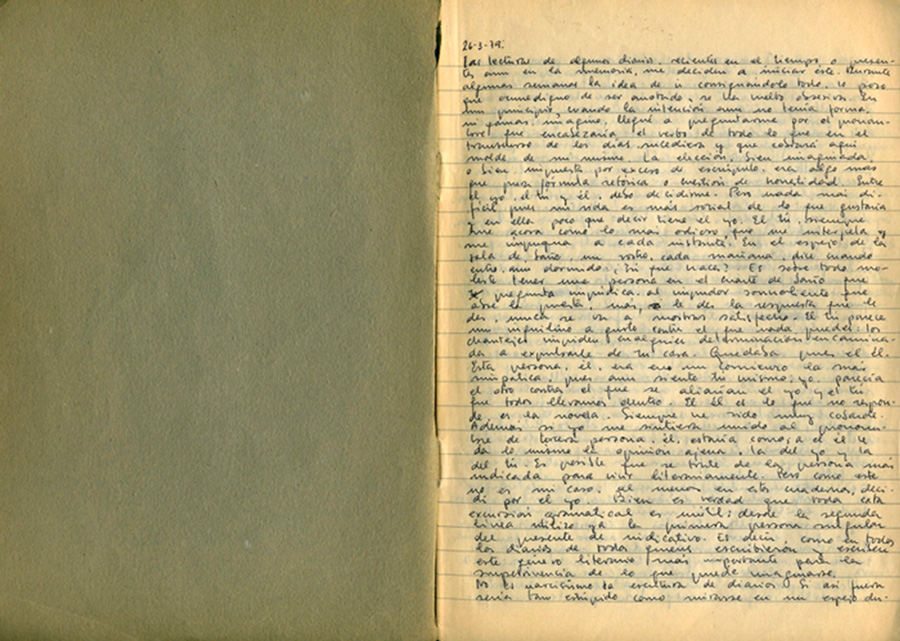 26-3-79.
Las lecturas de algunos diarios, recientes en el tiempo, o presen-
tes aun en la memoria, me deciden a iniciar este. Durante
algunas semanas la idea de ir consignandolo todo, lo poco
que creo digno de ser anotado, se ha vuelto obsesiva. En
un principio, cuando la intención aun no tenía forma,
ni jamas, imagino, llegué a preguntarme por el pronom-
bre que encabezaria el verbo de todo lo que en el
transcurso de los dias sucediera y que constará aquí
molde de mi mismo. La elección, bien imaginada,
o bien impuesta por exceso de escrúpulo, era algo mas
que pura fórmula retórica o cuestión de honestidad. Entre
el yo, el tú y él, debo decidirme. Pero nada más di-
ficil pues mi vida es más social de lo que gustaría
y en ella poco que decir tiene el yo. El tú, siempre
tuve acaso como lo mas odioso, que me interpela y
me impugna a cada instante. En el espejo de la
sala de baño, un rostro, cada mañana, dice cuando
entro aun dormido: ¿Tú que haces? Es sobre todo mo-
lesto tener una persona en el cuarto de baño que
pregunta impúdica al inquisidor somnoliente que
abre la puerta, mas, si le das la respuesta que le
des, nunca se va a mostrar satisfecho. El tú parece
un inquilino a gusto contra el que nada puedes: los
chantajes impiden cualquier determinación encamina-
da a expulsarle de tu casa. Quedaba pues el él.
Esta persona, él, era en un comienzo la más
simpática, pues aun siendo tú mismo, yo, parecía
el otro contra el que se aliarían el yo y el tú
que todos llevamos dentro. El él es lo que no respon-
de, es la novela. Siempre he sido muy cobarde.
Además si yo me sintiera unido al pronom-
bre de tercera persona, él, estaría como, a el él le
da lo mismo la opinión ajena, la del yo y la
del tú. Es posible que se trate de la persona más
indicada para vivir literariamente. Pero como este
no es mi caso, al menos en este cuaderno, deci-
dí por el yo. Bien es verdad que toda esta
excursión gramatical es inútil: desde la segunda
linea utilizo ya la primera persona singular
del presente de indicativo. Es decir, como en todos
los diarios de todos quienes escribieron y escriben
este género literario mas importante para la
supervivencia de lo que puede imaginarse.
No es narcisismo la escritura de diarios. Si así fuera
sería tan estúpido como mirarse en un espejo du-